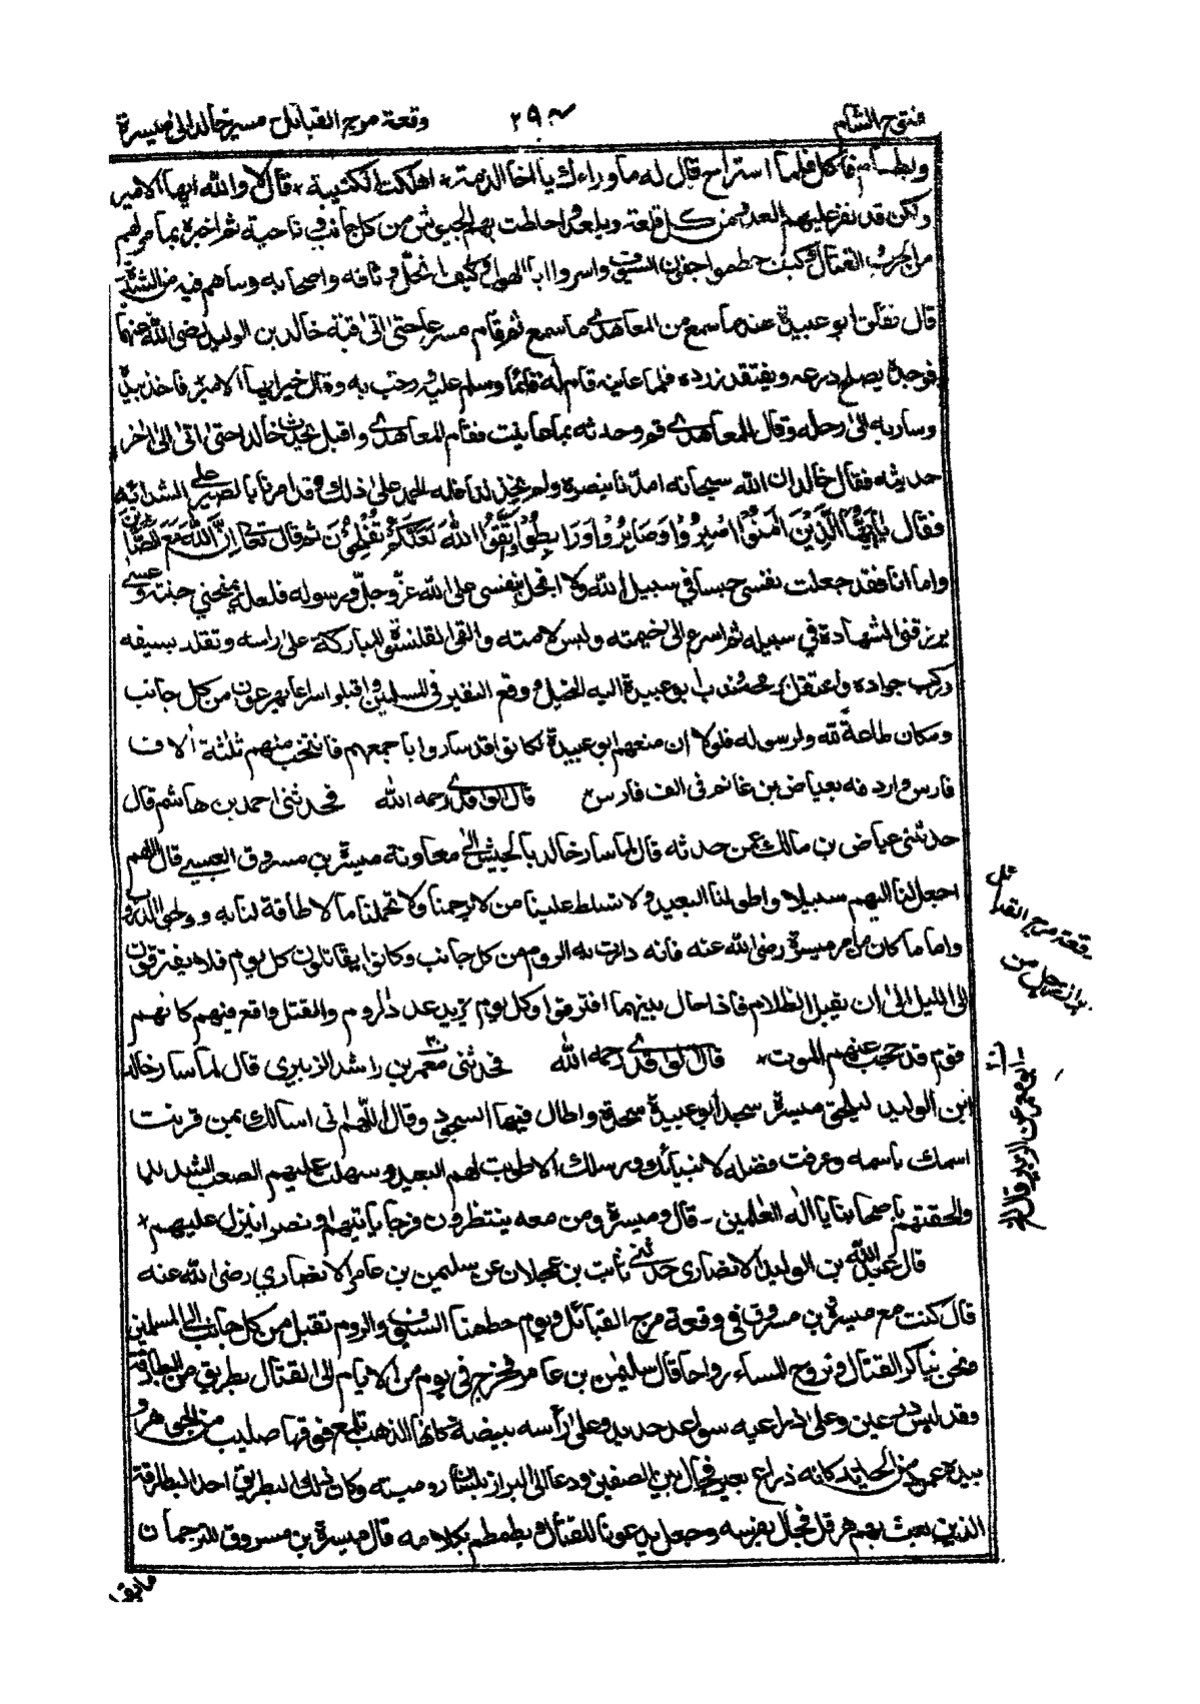 فتوح الشام
٢٩
وقعة مرج القبائل مسير خالد الى ميسرة
فأكل فلما استراح قال له ما وراءك يا اخا الذمة اهلكت الكتيبة قال لا والله ايها الامير
ولكن قد نفر عليهم العدو من كل قلعة وبلد واحاطت بهم الجيوش من كل جانب وناحية ثم اخبره بما جرى لهم
من الحرب والقتال وكيف حطموا اجفان السيوف
قال فقلق ابو عبيدة عند ما سمع من المعاهدى ما سمع ثم قام مسرعا حتى اتى قبة خالد بن الوليد رضى الله عنهما
فوجده يصلح درعه ويفتقد زرده فلما عاينه قام له قائما وسلم عليه ورحب به وقال خير ايها الامير فاخذ بيده
وسار به الى رحله وقال للمعاهدى قم وحدثه بما عاينت فقام المعاهدى واقبل يحدث خالدا حتى اتى الى اخر
حديثه فقال خالد ان الله سبحانه امدنا بنصره ولم يخذلنا فله الحمد على ذلك وقد امرنا بالصبر على الشدائد
فقال يٰاَيُّهَا الَّذِيْنَ اٰمَنُوا اصْبِرُوْا وَصَابِرُوْا وَرَابِطُوْا وَاتَّقُوا اللّٰهَ لَعَلَّكُمْ تُفْلِحُوْنَ ثم قال تعالى اِنَّ اللّٰهَ مَعَ الصَّابِرِيْنَ
واما انا فقد جعلت نفسى حبسا في سبيل الله ولا ابخل بنفسى على الله عز وجل ورسوله فلعله يمنحني جنته وعسى
يرزقنى الشهادة في سبيله ثم اسرع الى خيمته ولبس لامته والقى القلنسوة المباركة على راسه وتقلد بسيفه
وركب جواده واعتقل برمحه وندب ابو عبيدة اليه الخيل ووقع النفير فى المسلمين واقبلوا سراعا يهرعون من كل جانب
ومكان طاعة لله ولرسوله فلولا ان منعهم ابو عبيدة لكانوا قد ساروا باجمعهم فانتخب منهم ثلثة الاف
فارس واردفه بعياض بن غانم فى الف فارس قال الواقدى رحمه الله فحدثنى احمد بن هاشم قال
حدثنى عياض بن مالك عمن حدثه قال لما سار خالد بالجيش الى معاونة ميسرة بن مسروق العبسي قال اللهم
اجعل لنا اليهم سبيلا واطو لنا البعيد ولا تسلط علينا من لا يرحمنا ولا تحملنا ما لا طاقة لنا به
واما ما كان من امر ميسرة رضى الله عنه فانه دارت به الروم من كل جانب وكانوا يقاتلون كل يوم فلا يفترقون
الى الليل الى ان يقبل الظلام فاذا حال بينهما افترقوا وكل يوم يزيد عدد الروم والقتل واقع فيهم كانهم
قوم قد حجب عنهم الموت قال الواقدى رحمه الله فحدثنى معمر بن راشد الزبيرى قال لما سار خالد
ابن الوليد ليلحق ميسرة سجد ابو عبيدة سجدة واطال فيها السجود وقال اللّٰهم انى اسالك بمن قرنت
اسمك باسمه وعرفت فضله لانبيائك ورسلك الا طويت لهم البعيد وسهلت عليهم الصعب الشديد
والحقتهم باصحابنا يا اله العٰلمين - قال وميسرة ومن معه ينتظرون فرجا ياتيهم او نصرا ينزل عليهم
قال عبد الله بن الوليد الانصارى حدثنى ثابت بن عجلان عن سليمن بن عامر الانصاري رضى الله عنه
قال كنت مع ميسرة بن مسروق فى وقعة مرج القبائل ويوم حطمنا السيوف والروم تقبل من كل جانب الى المسلمين
فنحن نباكر القتال ونروح المساء رواحا قال سليمن بن عامر فخرج فى يوم من الايام الى القتال بطريق من البطارقة
وقد لبس درعين وعلى ذراعيه سواعد حديد وعلى رأسه بيضة كانها الذهب تلمع فوقها صليب من الجوهر و
بيده عمود من الحديد كانه ذراع بعير فجال بين الصفين ودعا الى البراز بلسان روميته وكان ذلك البطريق احد البطارقة
الذين بعث بهم هرقل فجال بفرسه وجعل يدعونا للقتال ويطمطم بكلامه قال ميسرة بن مسروق للترجمان
ما يقول